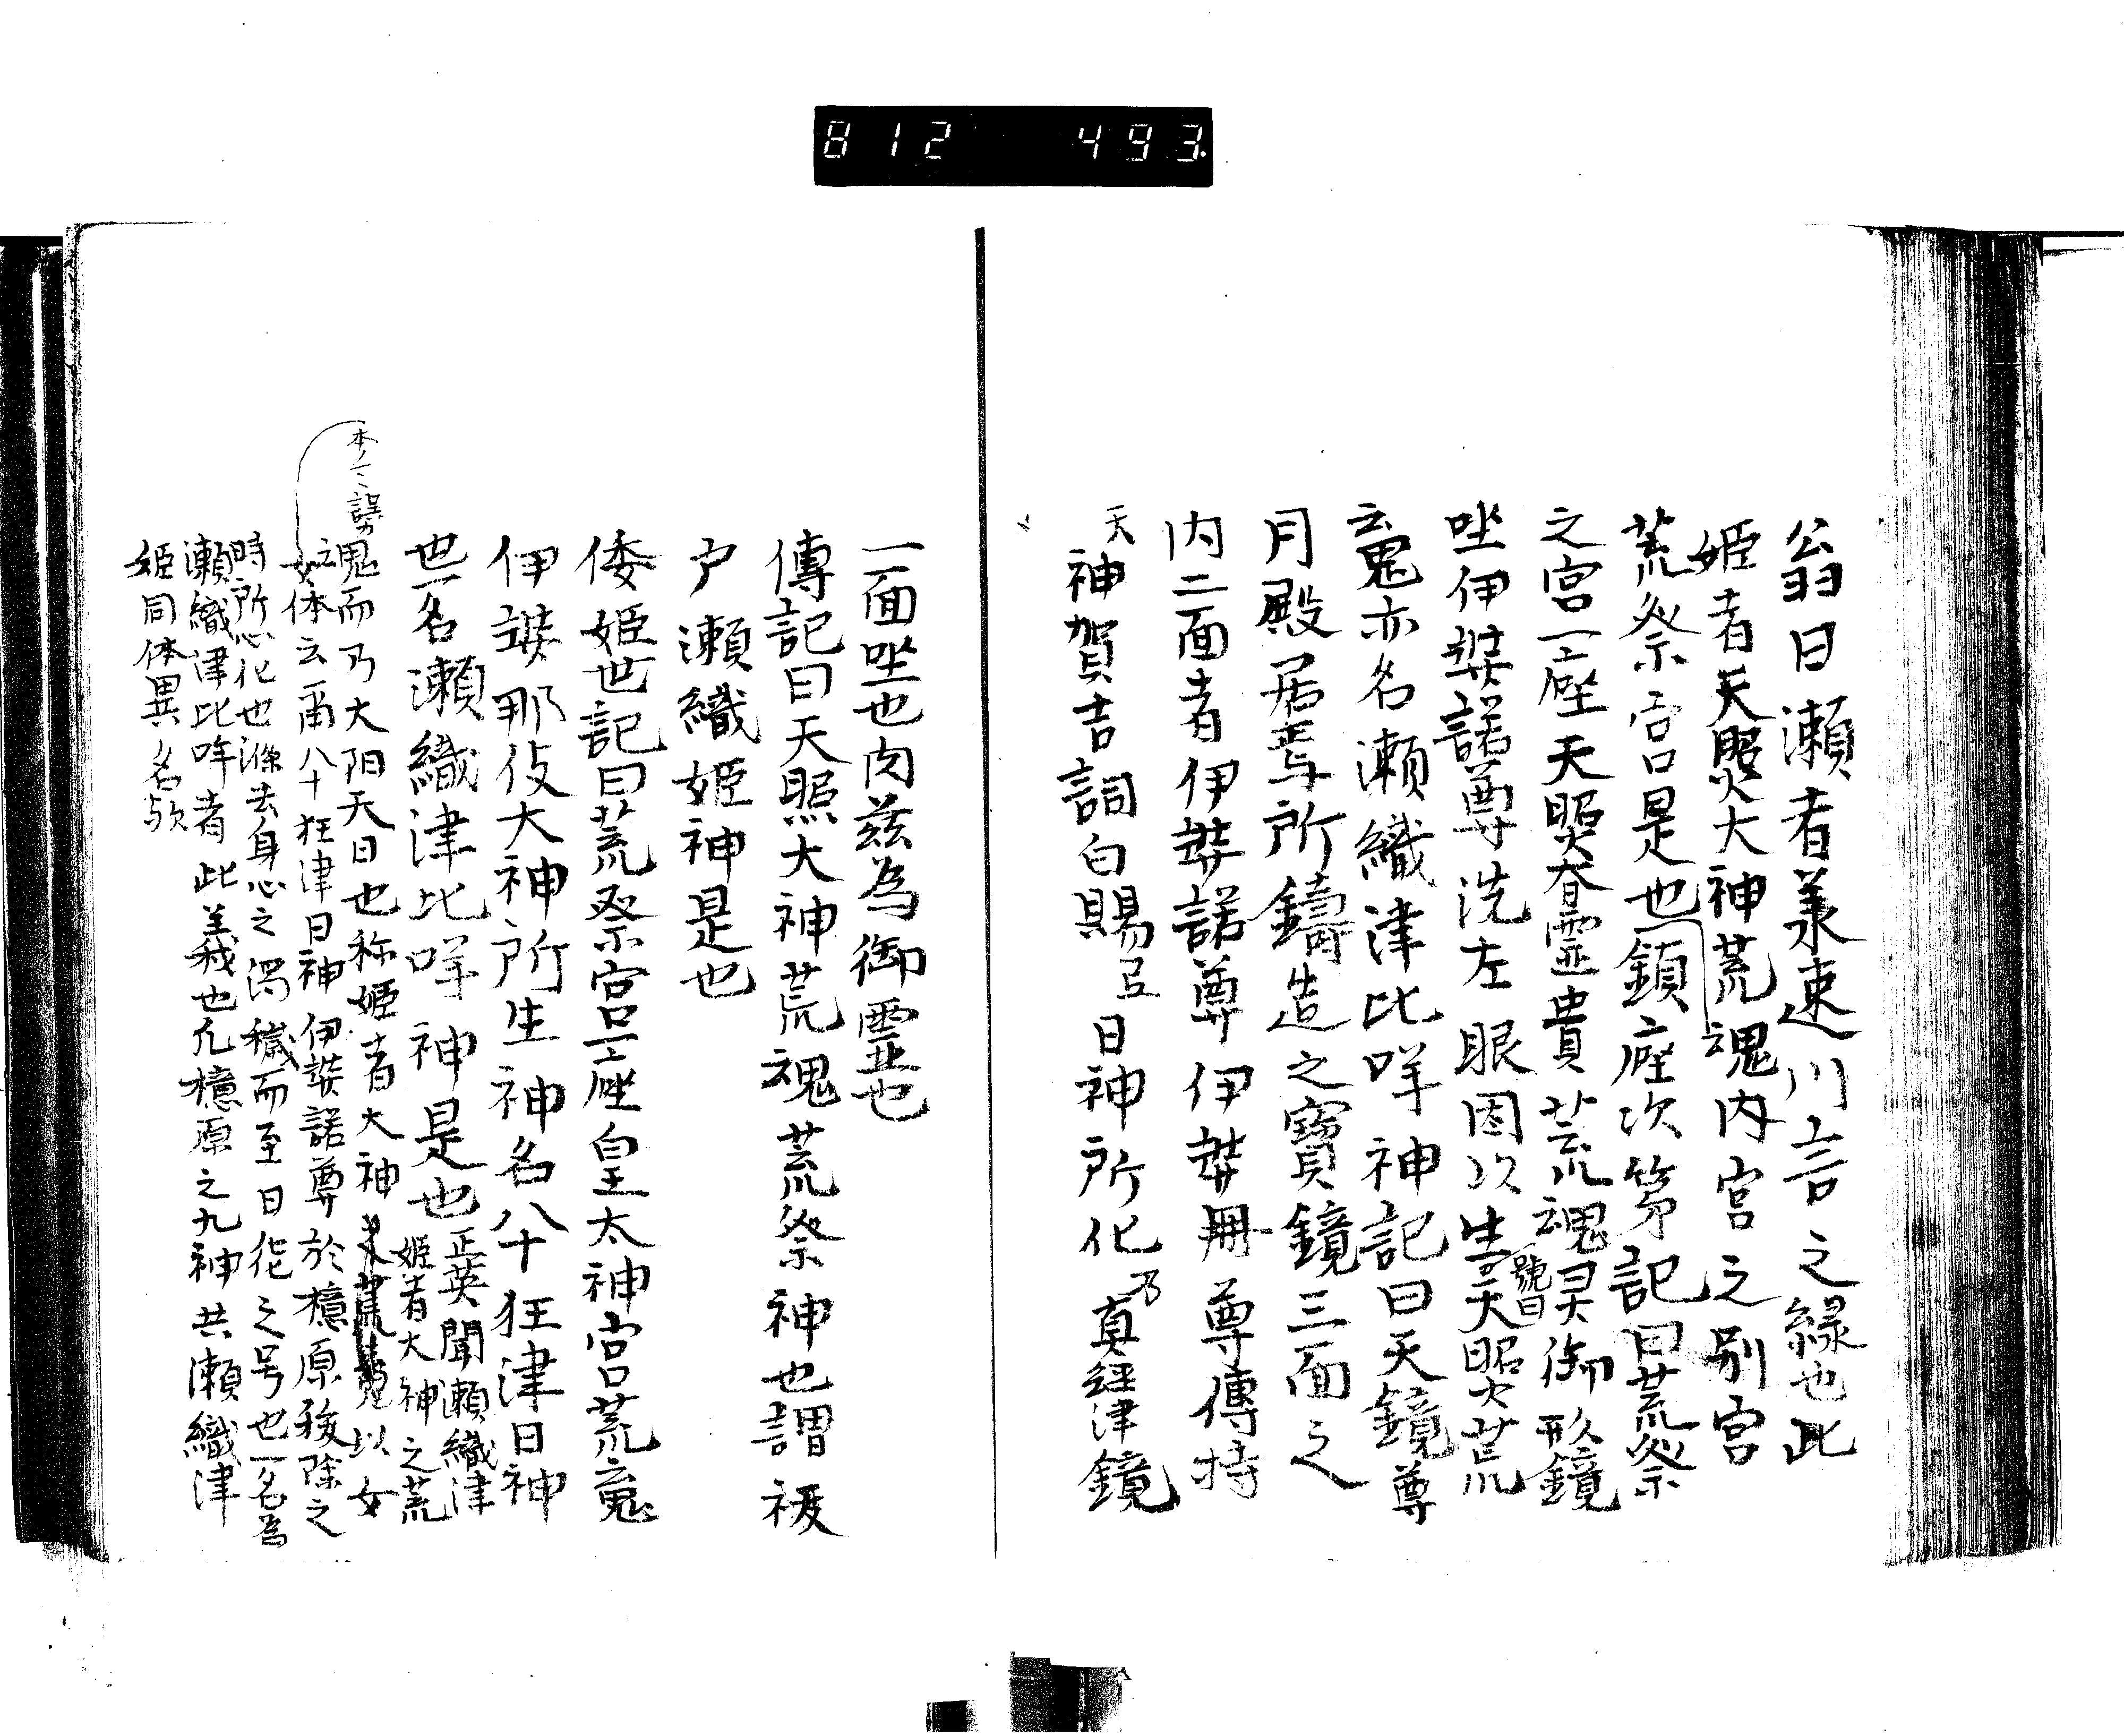 812 493.
翁曰瀬者兼速川言之縁也此
姫者天照大神荒魂内宮之別宮
荒祭宮是也鎮座次第記曰荒祭
之宮一座天照大日孁貴荒魂号曰御形鏡
坐伊弉諾尊洗左眼因以生号天照荒
魂亦名瀬織津比咩神記曰天鏡尊
月殿居焉所鑄造之寳鏡三面之
内二面者伊弉諾尊伊弉冊尊傳持
天神賀吉詞白賜弖日神所化乃真経津鏡
一面坐也肉茲為御霊也
傳記曰天照大神荒魂荒祭神也謂祓
户瀬織姫神是也
倭姫世記曰荒祭宮一座皇太神宮荒魂
伊弉那伎大神所生神名八十狂津日神
也一名瀬織津比咩神是也正英聞瀬織津
姫者大神之荒
本ノマヽ誤カ
魂而乃大阳天日也称姫者大神以女
之女体云爾八十狂津日神伊弉諾尊於檍原秡除之
時所化也滌去身心之濁穢而至日化之号也一名為
瀬織津比咩者此義也凡檍原之九神共瀬織津
姫同体異名歟